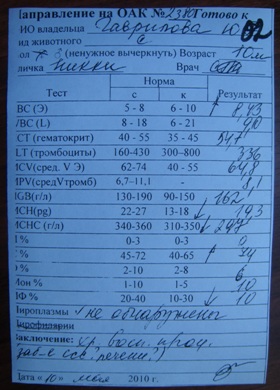 аправление на ОАК № 2380 Готово к
ИО владельца Гаврилова Ю.
ид животного с 02
ол (ненужное вычеркнуть) Возраст 10
личка Никки Врач
Тест Норма с к Результат
ВС (Э) 5 - 8 6 - 10 8,93
/ВС (L) 8 - 18 6 - 21 9,0
СТ (гематокрит) 40 - 55 35 - 45
LT (тромбоциты) 160-430 300-800 336
ICV(сред. V Э) 62-74 40 - 55 64,8
IPV(средVтромб) 6,7-11,1 - 8,1
IGB(г/л) 130-190 90-150 162
ICH(pg) 22-27 13-18 ↓ 19,3
ICHC (г/л) 340-360 310-350 ↓ 297
I % 0-3 0-3 0
% 45-72 40-65 ↑
Э % 2-10 2-8 6
Мон % 1-10 1-5 10
Ф % 20-40 10-30 ↓ 10
Іироплазмы не обнаружено
Іирофилярии
Заключение: хр. восп. проц.
печени?)
Дата «10» мая 2010 г.